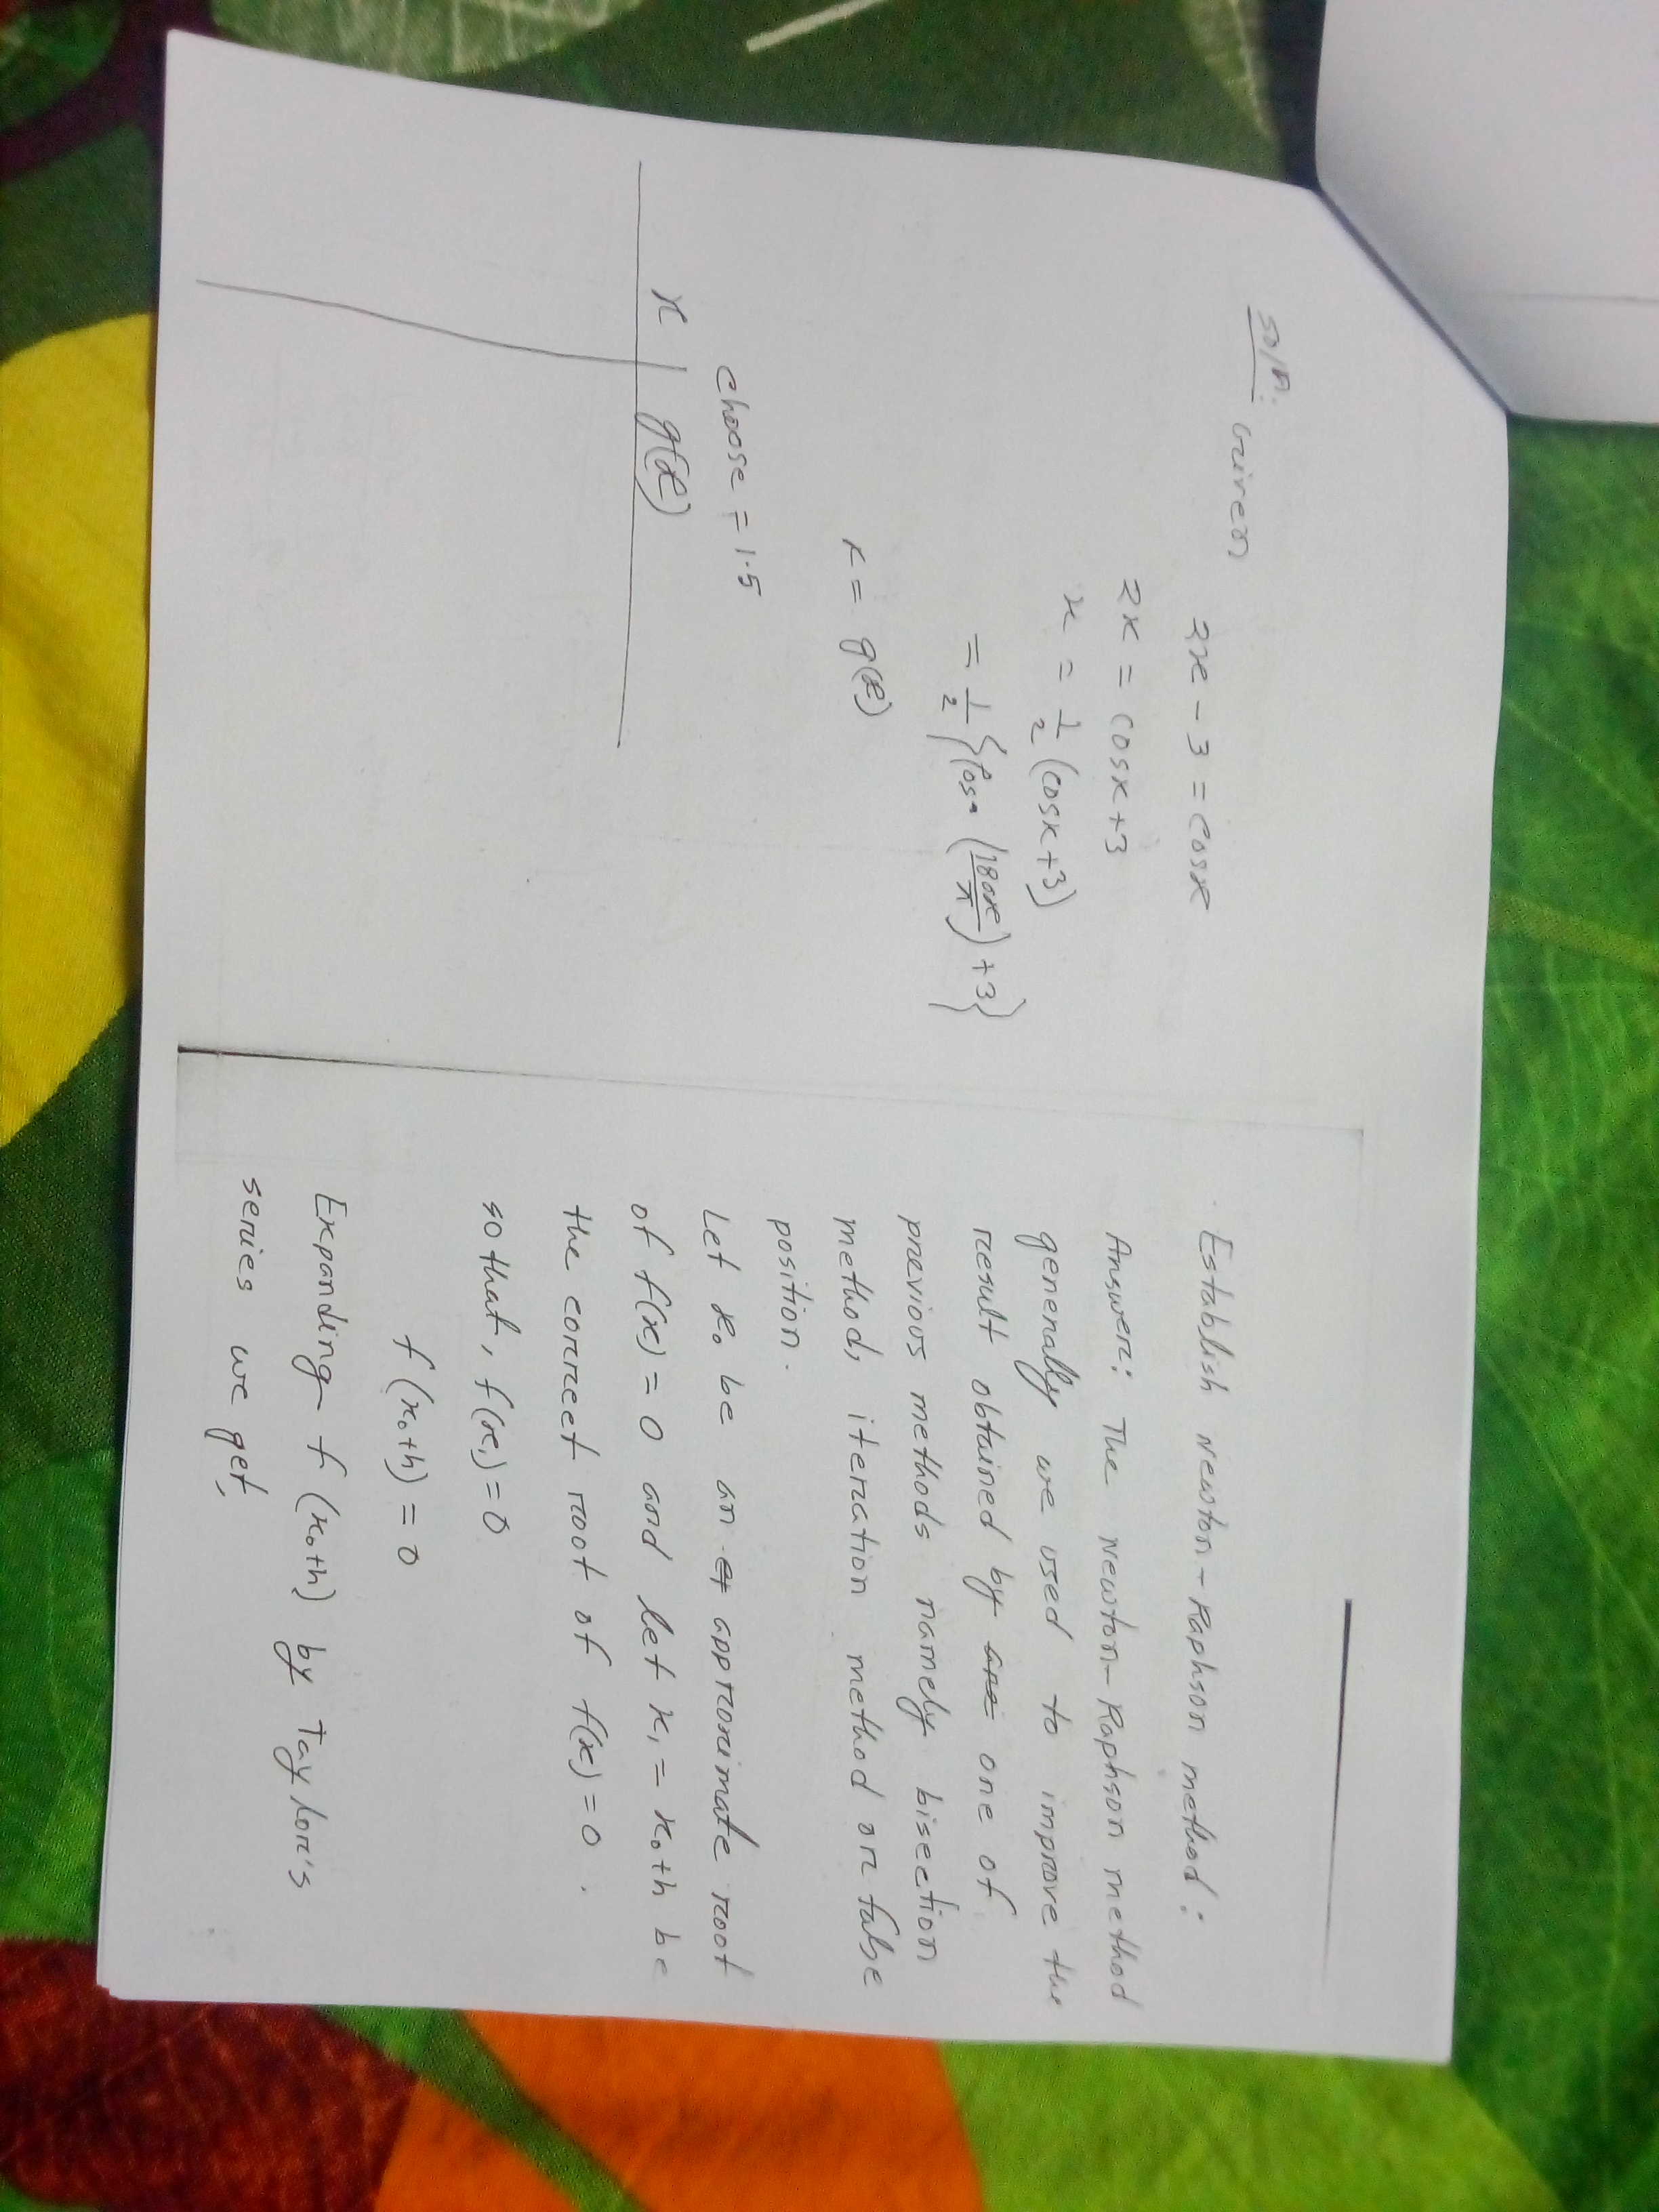 Soln.
Given
2x - 3 = cosx
2x = cosx+3
x = 1/2 (cosx+3)
= 1/2 {cos (180x/π) +3}
x = g(x)
choose = 1.5
x | g(x)
Establish Newton-Raphson method:
Answer: The Newton-Raphson method
generally we used to improve the
result obtained by one of
previous methods namely bisection
method, iteration method or false
position.
Let x₀ be an approximate root
of f(x) = 0 and let x₁ = x₀+h be
the correct root of f(x) = 0.
so that, f(x₁) = 0
f(x₀+h) = 0
Expanding f(x₀+h) by Taylor's
series we get,